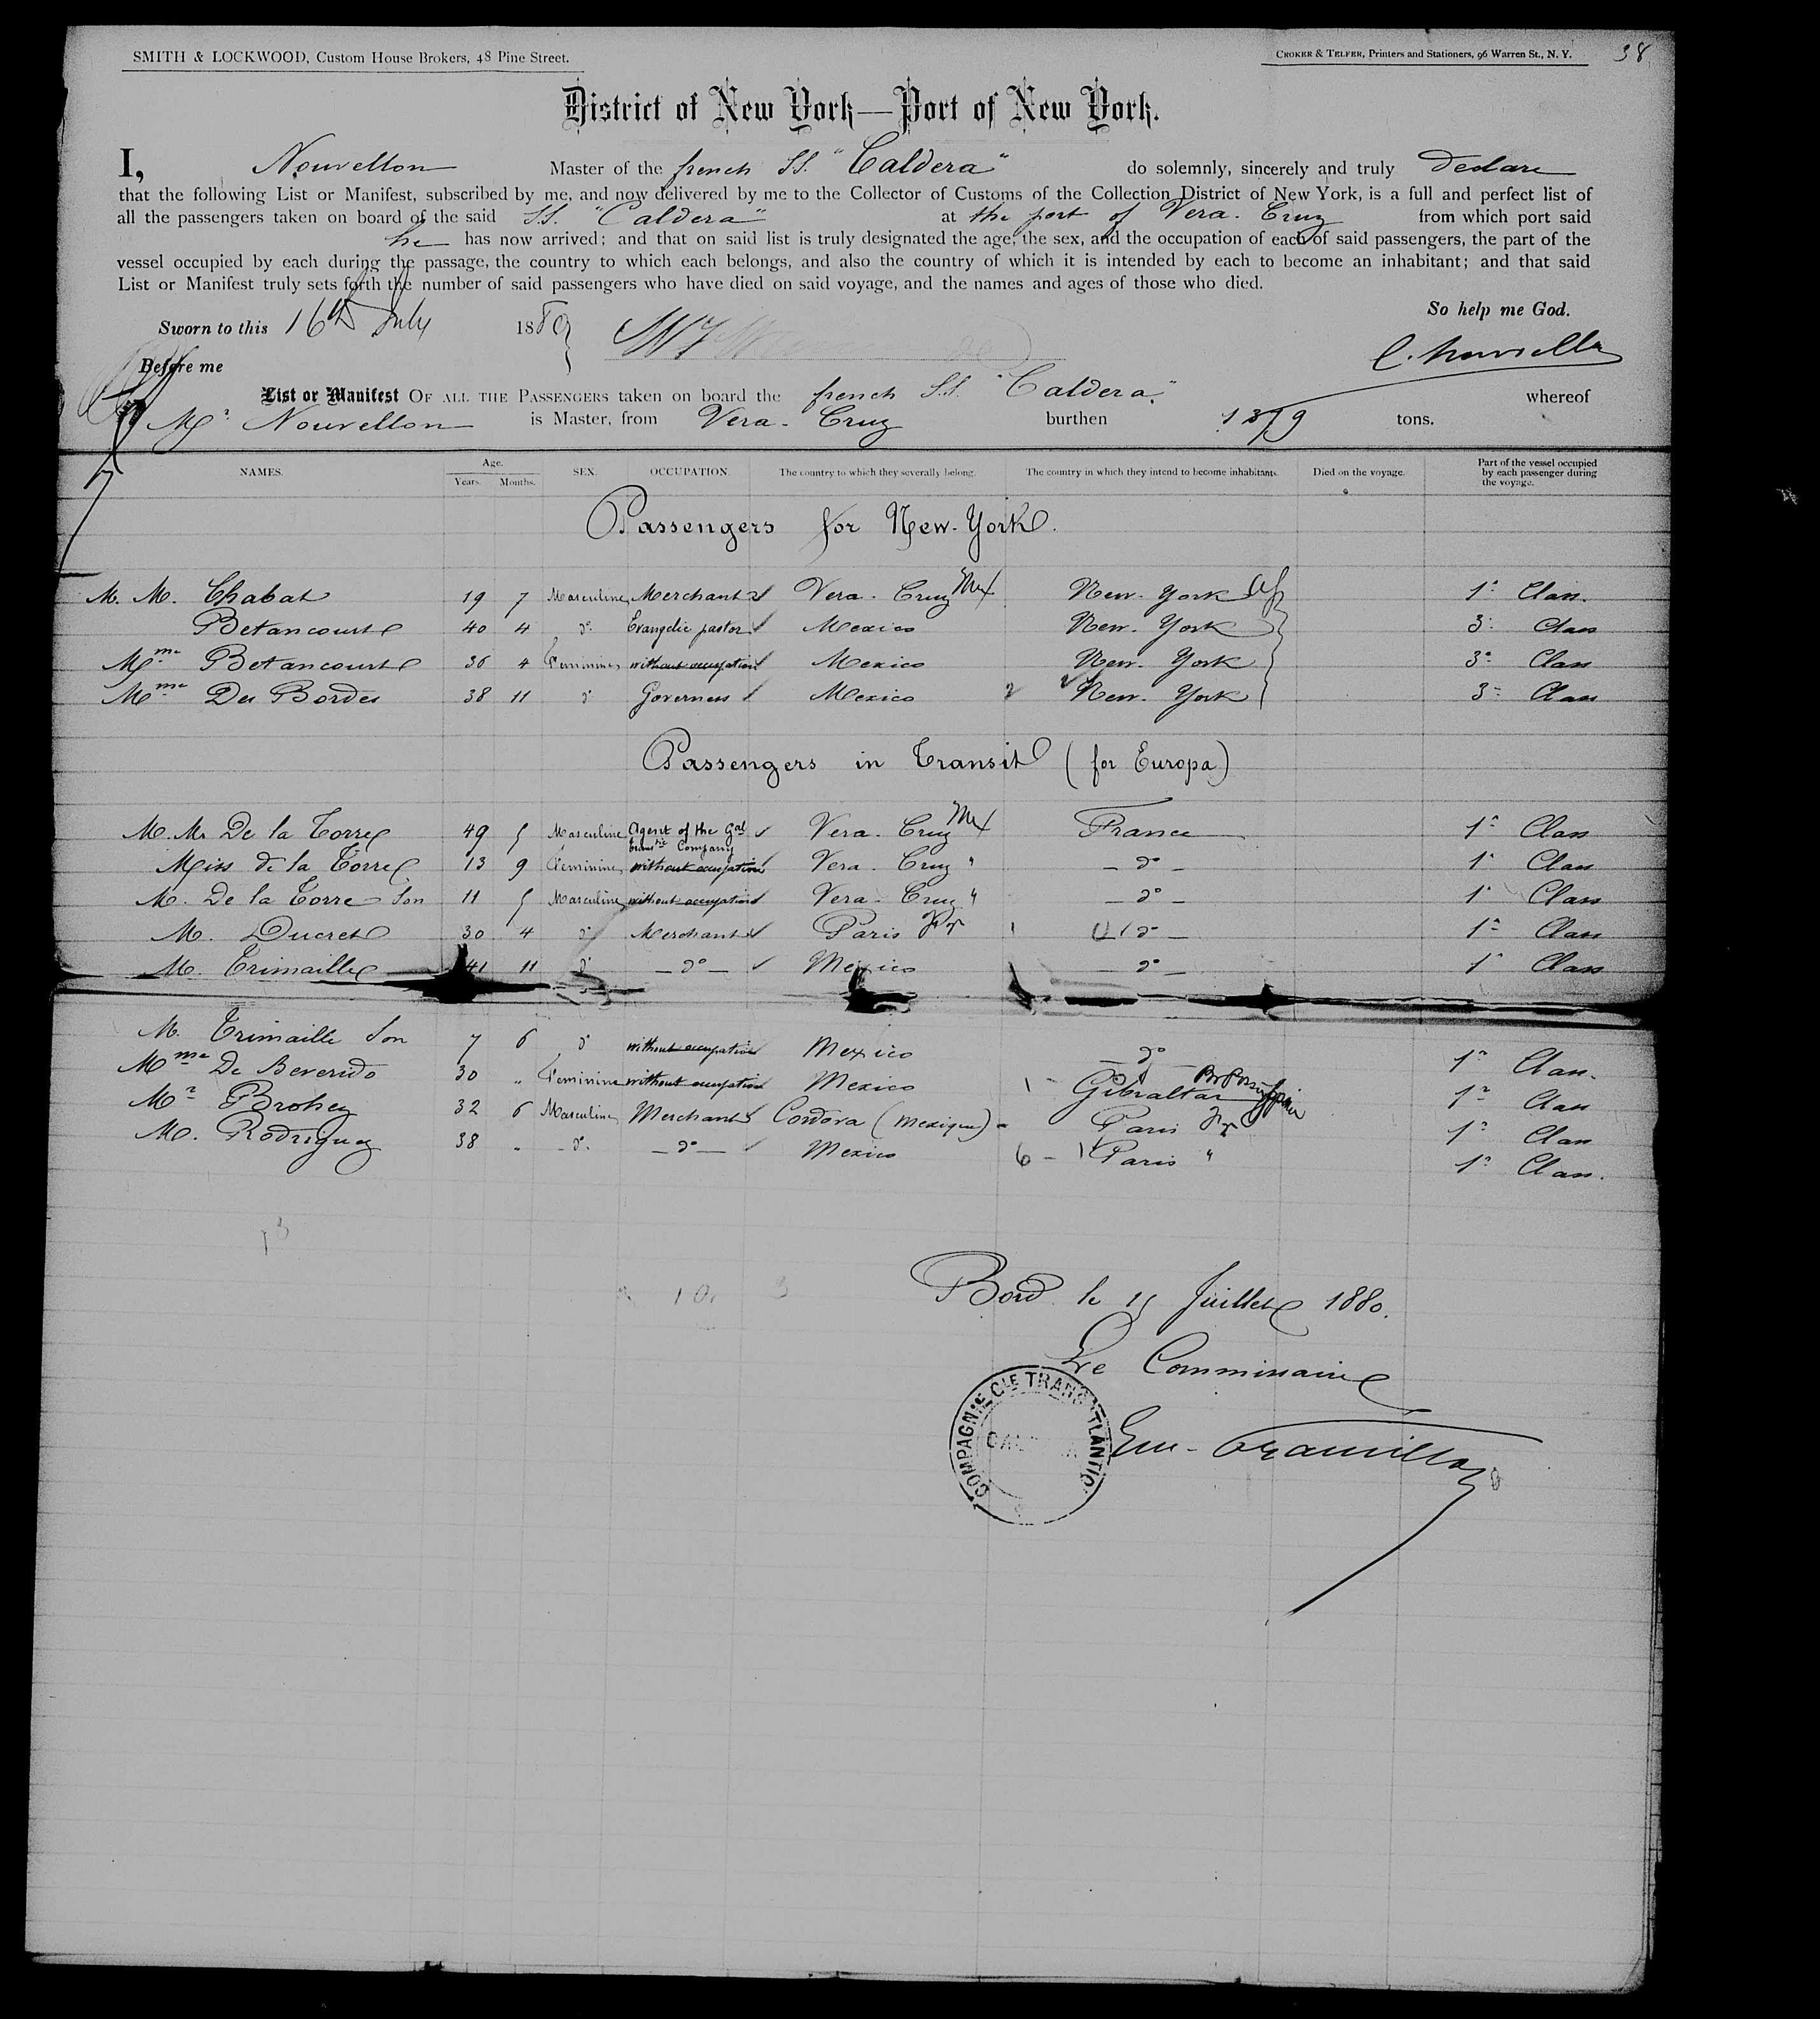 SMITH & LOCKWOOD, Custom House Brokers, 48 Pine Street. CROKER & TELFER, Printers and Stationers, 96 Warren St., N. Y. 38
District of New York—Port of New York.
I, Nouvellon Master of the french SS. "Caldera" do solemnly, sincerely and truly Declare
that the following List or Manifest, subscribed by me, and now delivered by me to the Collector of Customs of the Collection District of New York, is a full and perfect list of
all the passengers taken on board of the said SS. "Caldera" at the port of Vera-Cruz from which port said
he has now arrived; and that on said list is truly designated the age, the sex, and the occupation of each of said passengers, the part of the
vessel occupied by each during the passage, the country to which each belongs, and also the country of which it is intended by each to become an inhabitant; and that said
List or Manifest truly sets forth the number of said passengers who have died on said voyage, and the names and ages of those who died.
So help me God.
Sworn to this 16th July 1880
Before me
List or Manifest OF ALL THE PASSENGERS taken on board the french SS. "Caldera" whereof
Mr Nouvellon is Master, from Vera-Cruz burthen tons.
NAMES. Age. Years. Months. SEX. OCCUPATION. The country to which they severally belong. The country in which they intend to become inhabitants. Died on the voyage. Part of the vessel occupied by each passenger during the voyage.
Passengers for New-York.
M. M. Chabat 19 7 Masculine Merchant Vera-Cruz Mex New-York 1e Class.
Betancourt 40 4 do Evangelic pastor Mexico New-York 3e Class
Mme Betancourt 36 4 Feminine without occupation Mexico New-York 3e Class
Mme Des Bordes 38 11 do Governess Mexico 2 New-York 3e Class
Passengers in Transit (for Europa)
M. M. De la Torre 49 5 Masculine Agent of the Gal Vera-Cruz Mex France 1e Class
Transtic Company
Miss de la Torre 13 9 Feminine without occupation Vera-Cruz " — do — 1e Class
M. De la Torre Son 11 5 Masculine without occupation Vera-Cruz " — do — 1e Class
M. Ducret 30 4 do Merchant Paris Fr 1 — do — 1e Class
M. Trimaille 41 11 do — do — Mexico — do — 1e Class
M. Trimaille Son 7 6 do without occupation Mexico — do — 1e Class.
Mme De Beverido 30 " Feminine without occupation Mexico 1 - Gibraltar Spain 1e Class
Mr Brohez 32 6 Masculine Merchant Cordova (Mexique) Paris Fr 1e Class
M. Rodriguez 38 " - do - — do — Mexico 6 - Paris " 1e Class.
Bord le 15 Juillet 1880.
Le Commissaire
COMPAGNIE GLE TRANSATLANTIQ